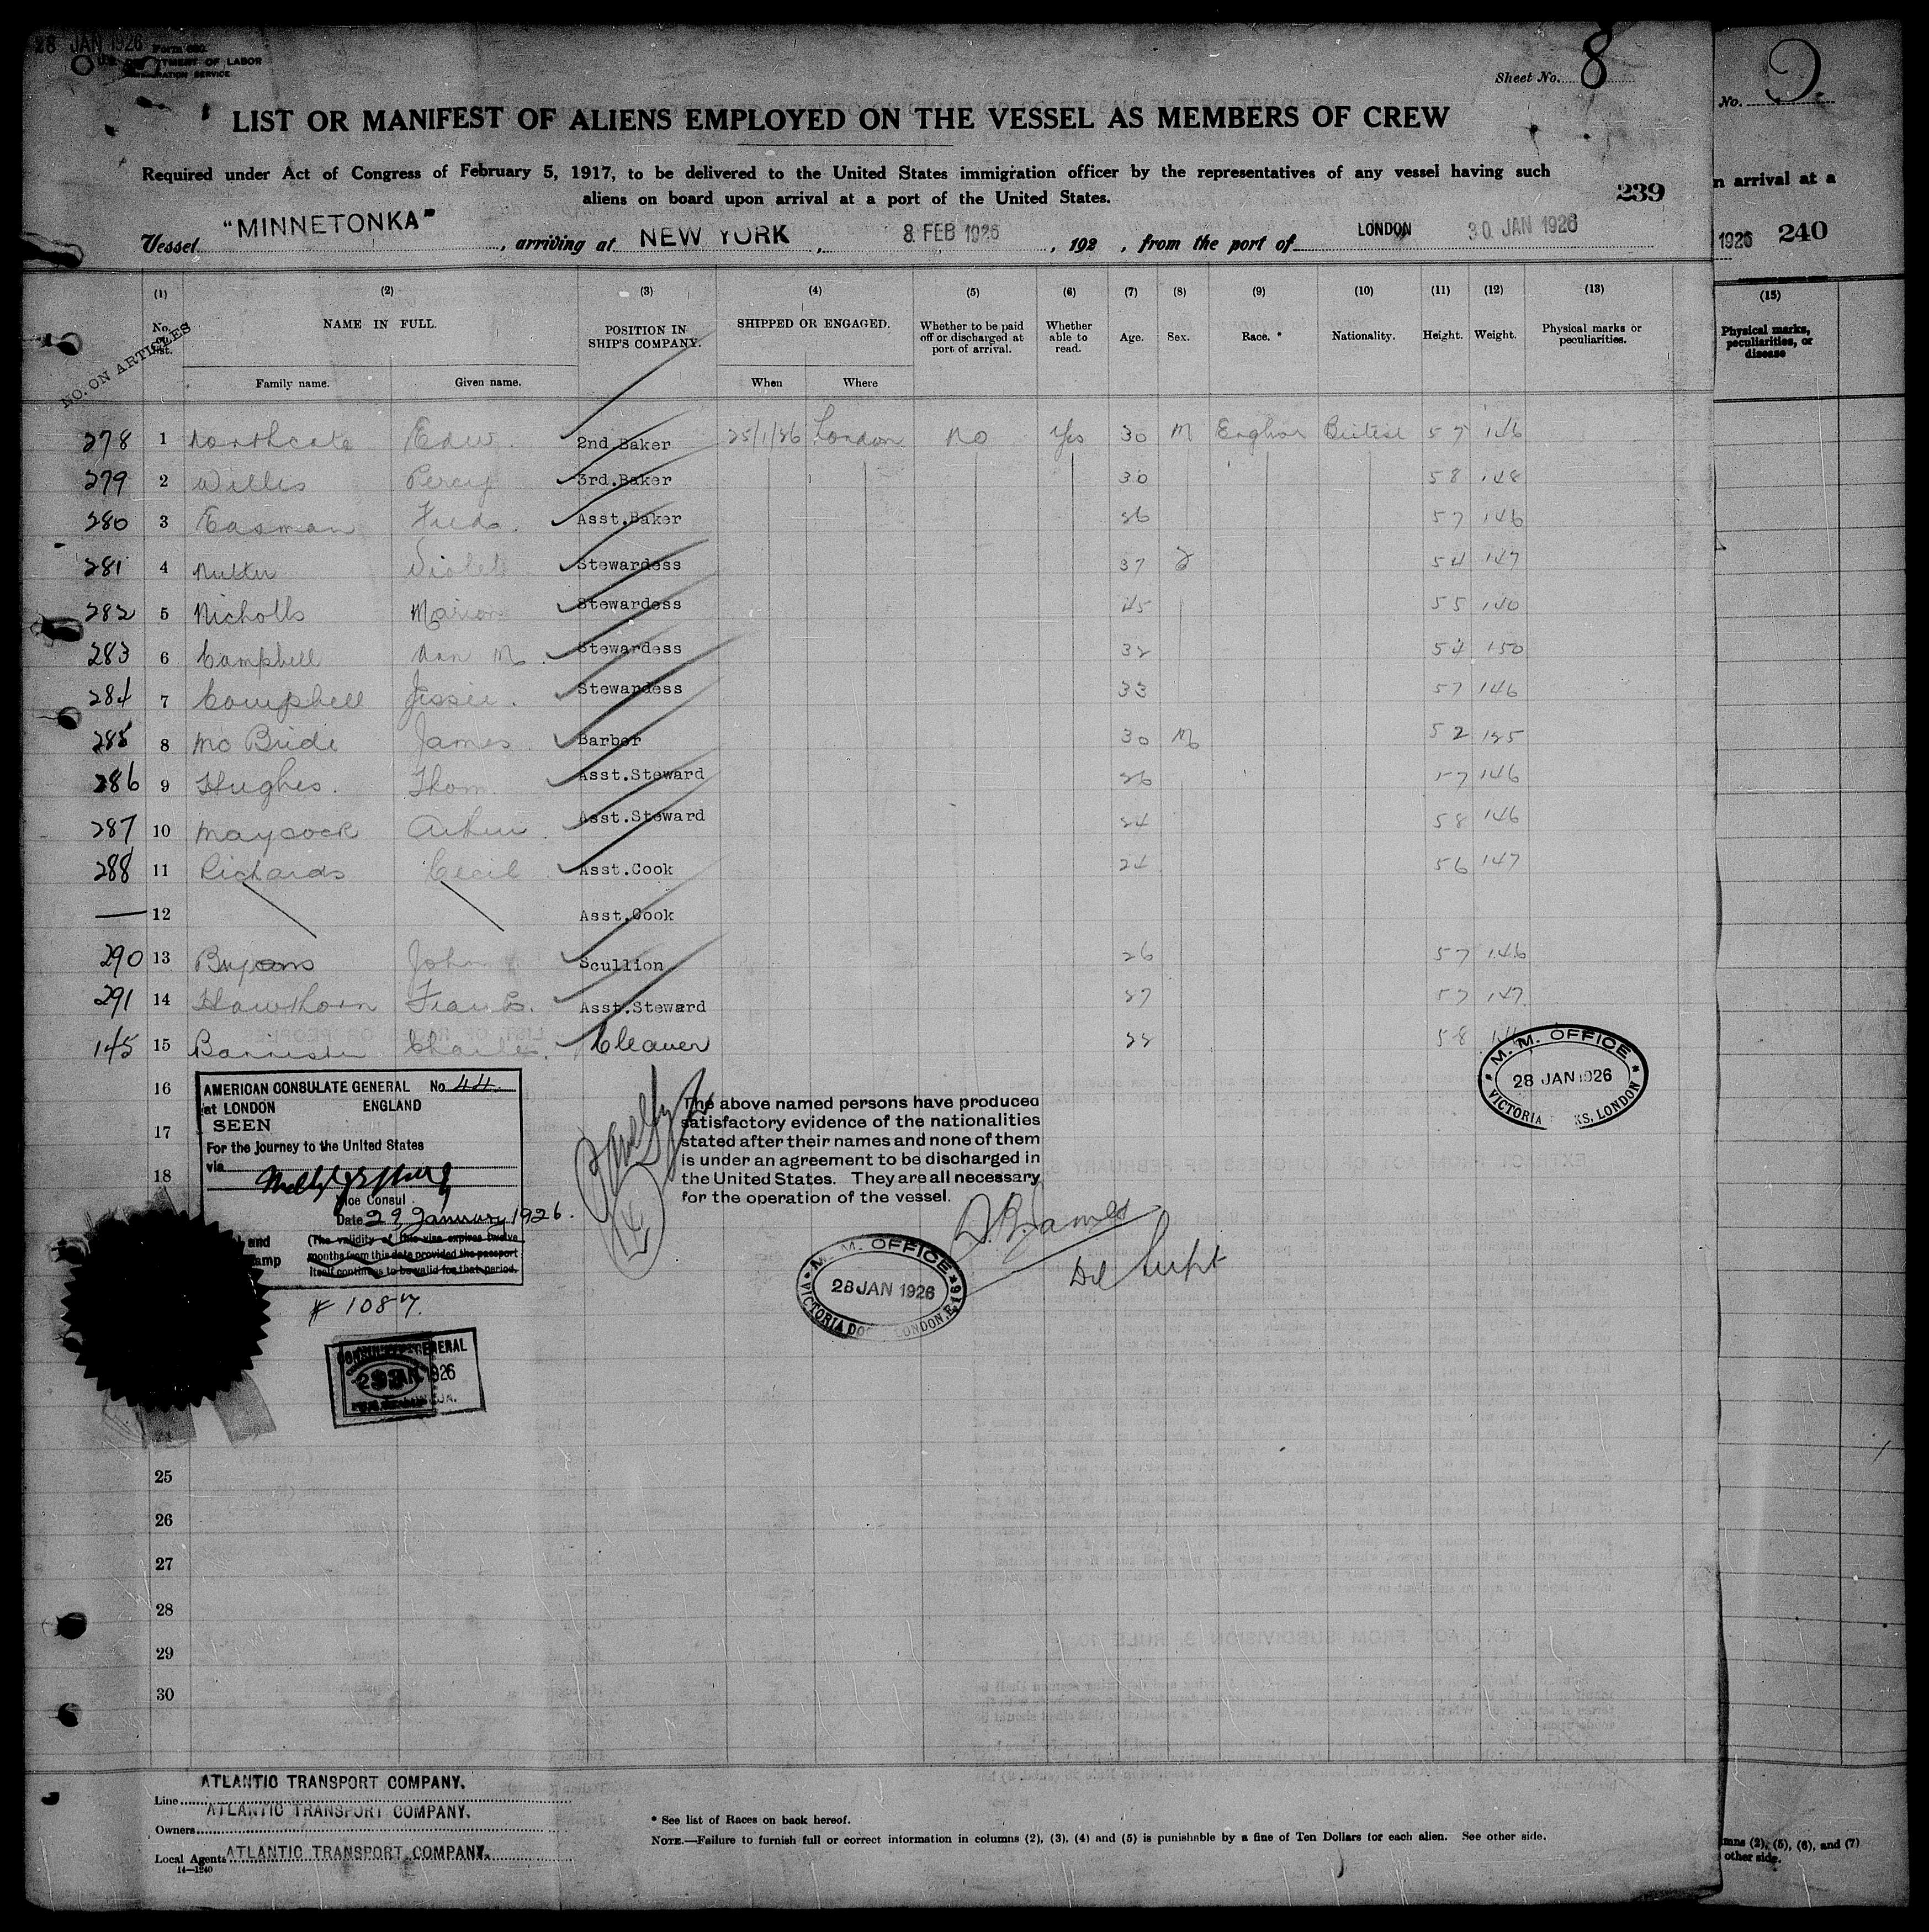 28 JAN 1926 Form 680
U.S. DEPARTMENT OF LABOR
IMMIGRATION SERVICE
Sheet No. 8
No. 9
LIST OR MANIFEST OF ALIENS EMPLOYED ON THE VESSEL AS MEMBERS OF CREW
Required under Act of Congress of February 5, 1917, to be delivered to the United States immigration officer by the representatives of any vessel having such
aliens on board upon arrival at a port of the United States.
239
n arrival at a
Vessel "MINNETONKA", arriving at NEW YORK, 8 FEB 1926, 192 , from the port of LONDON 30 JAN 1926
1926 240
NO. ON ARTICLES
(1) (2) (3) (4) (5) (6) (7) (8) (9) (10) (11) (12) (13)
(15)
No. on list. NAME IN FULL. POSITION IN SHIP'S COMPANY. SHIPPED OR ENGAGED. Whether to be paid off or discharged at port of arrival. Whether able to read. Age. Sex. Race.* Nationality. Height. Weight. Physical marks or peculiarities.
Physical marks, peculiarities, or disease
Family name. Given name. When Where
278 1 Northcote Edw. 2nd.Baker 25/1/26 London No Yes 30 M English British 5 7 146
279 2 Willis Percy 3rd.Baker 30 5 8 148
280 3 Easman Fredk. Asst.Baker 26 5 7 146
281 4 Nutter Violet Stewardess 37 F 5 4 147
282 5 Nicholls Marion Stewardess 45 5 5 140
283 6 Campbell Nan M. Stewardess 32 5 4 150
284 7 Campbell Jessie. Stewardess 33 5 7 146
285 8 McBride James Barber 30 M 5 2 125
286 9 Hughes. Thom. Asst.Steward 26 5 7 146
287 10 Maycock Arthur Asst.Steward 24 5 8 146
288 11 Richards Cecil Asst.Cook 24 5 6 147
12 Asst.Cook
290 13 Bryans John Scullion 26 5 7 146
291 14 Hawthorn Frank. Asst.Steward 27 5 7 147
145 15 Bannister Charles. Cleaner 5 8
M. M. OFFICE
28 JAN 1926
VICTORIA DOCKS, LONDON
16
17
18
AMERICAN CONSULATE GENERAL No. 44
at LONDON ENGLAND
SEEN
For the journey to the United States
via
Vice Consul
Date 29 January 1926.
(The validity of this visa expires twelve
months from this date provided the passport
itself continues to be valid for that period.
and
amp
The above named persons have produced
satisfactory evidence of the nationalities
stated after their names and none of them
is under an agreement to be discharged in
the United States. They are all necessary
for the operation of the vessel.
Supt
M. M. OFFICE
28 JAN 1926
VICTORIA DOCKS, LONDON, E.16
# 1087.
25
26
27
28
29
30
Line ATLANTIC TRANSPORT COMPANY.
Owners ATLANTIC TRANSPORT COMPANY.
Local Agents ATLANTIC TRANSPORT COMPANY.
14-1240
* See list of Races on back hereof.
NOTE.—Failure to furnish full or correct information in columns (2), (3), (4) and (5) is punishable by a fine of Ten Dollars for each alien. See other side.
mns (2), (5), (6), and (7)
other side.